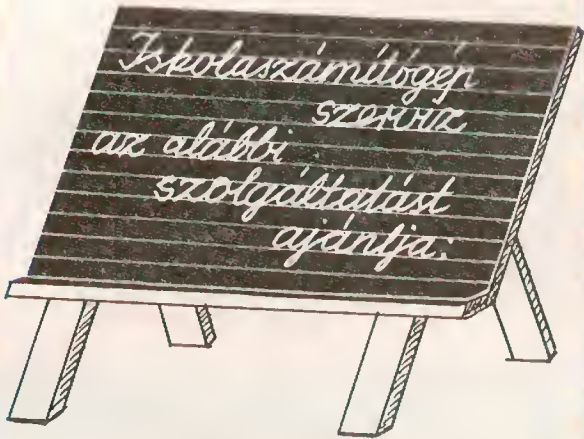 Iskolaszámítógép
szerviz
az alábbi
szolgáltatást
ajánlja: